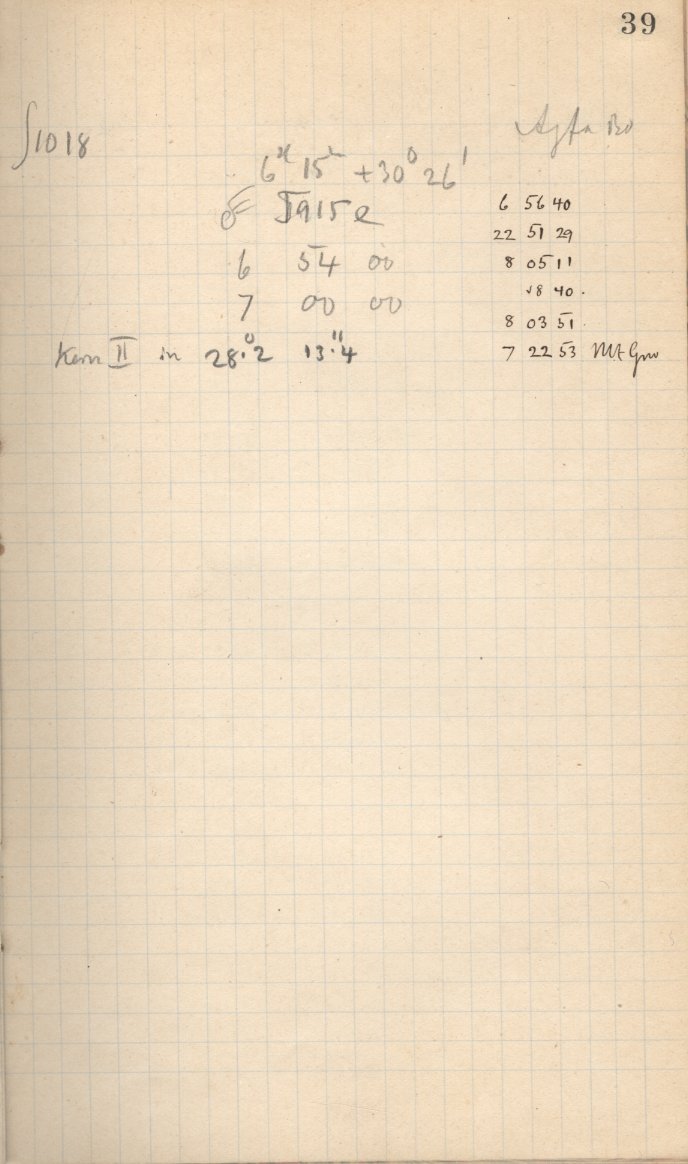 39
∫1018
Agfa
6ʰ 15ᵐ +30° 26'
☄ J915 e
6 54 00
7 00 00
Kern II in 28.°2 13."4
6 56 40
22 51 29
8 05 11
18 40.
8 03 51
7 22 53 Mt